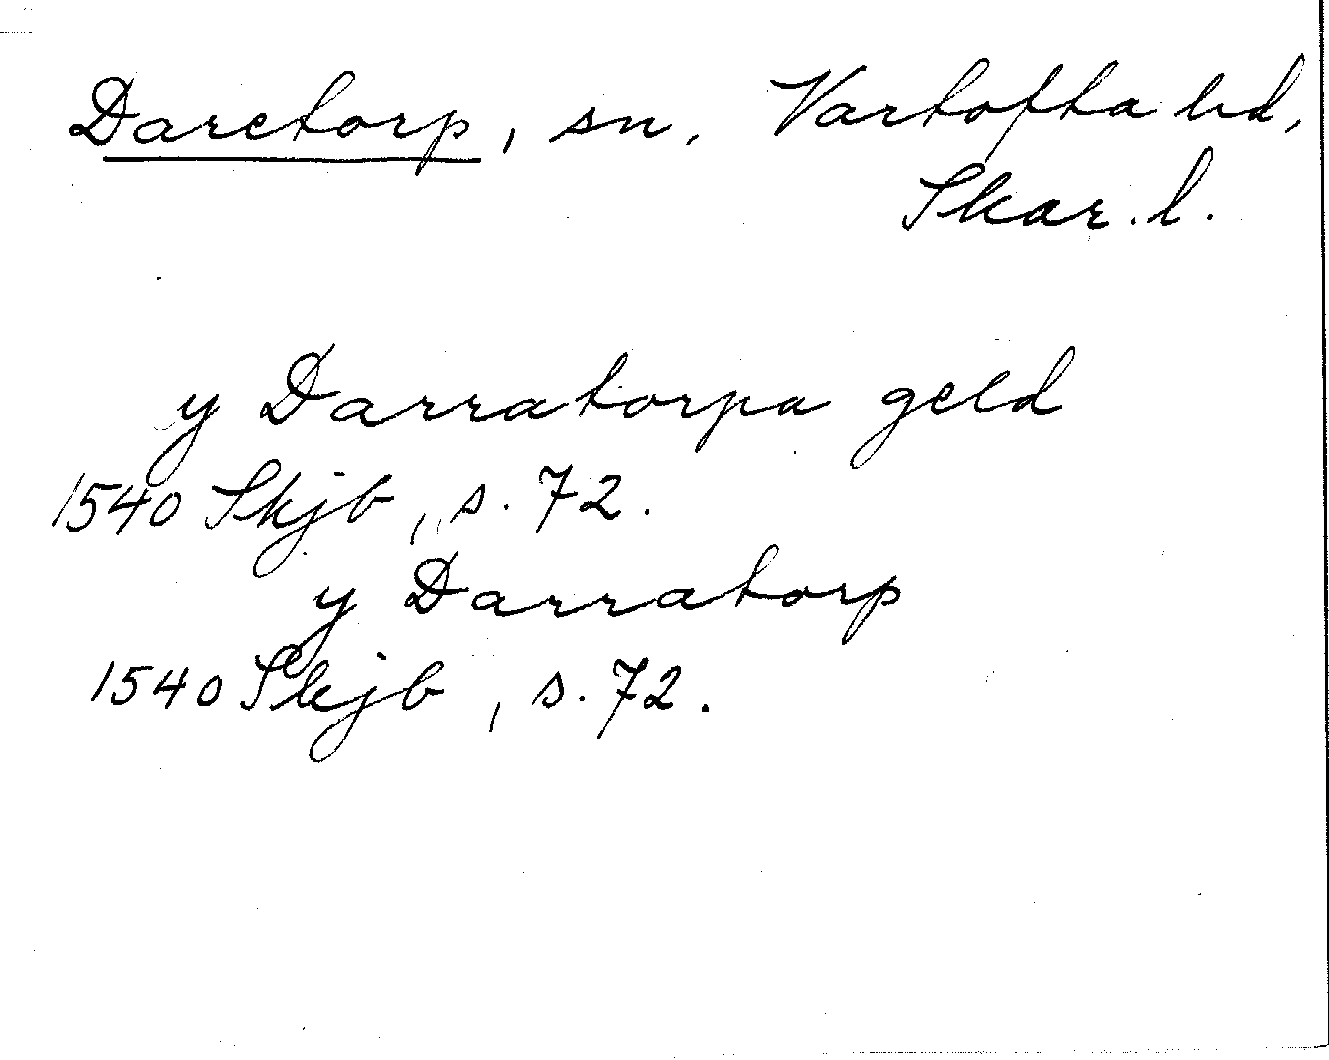 Daretorp, sn, Vartofta hd,
Skar. l.
y Darratorpa geld
1540 Skjb, s. 72.
y Darratorp
1540 Skjb, s. 72.